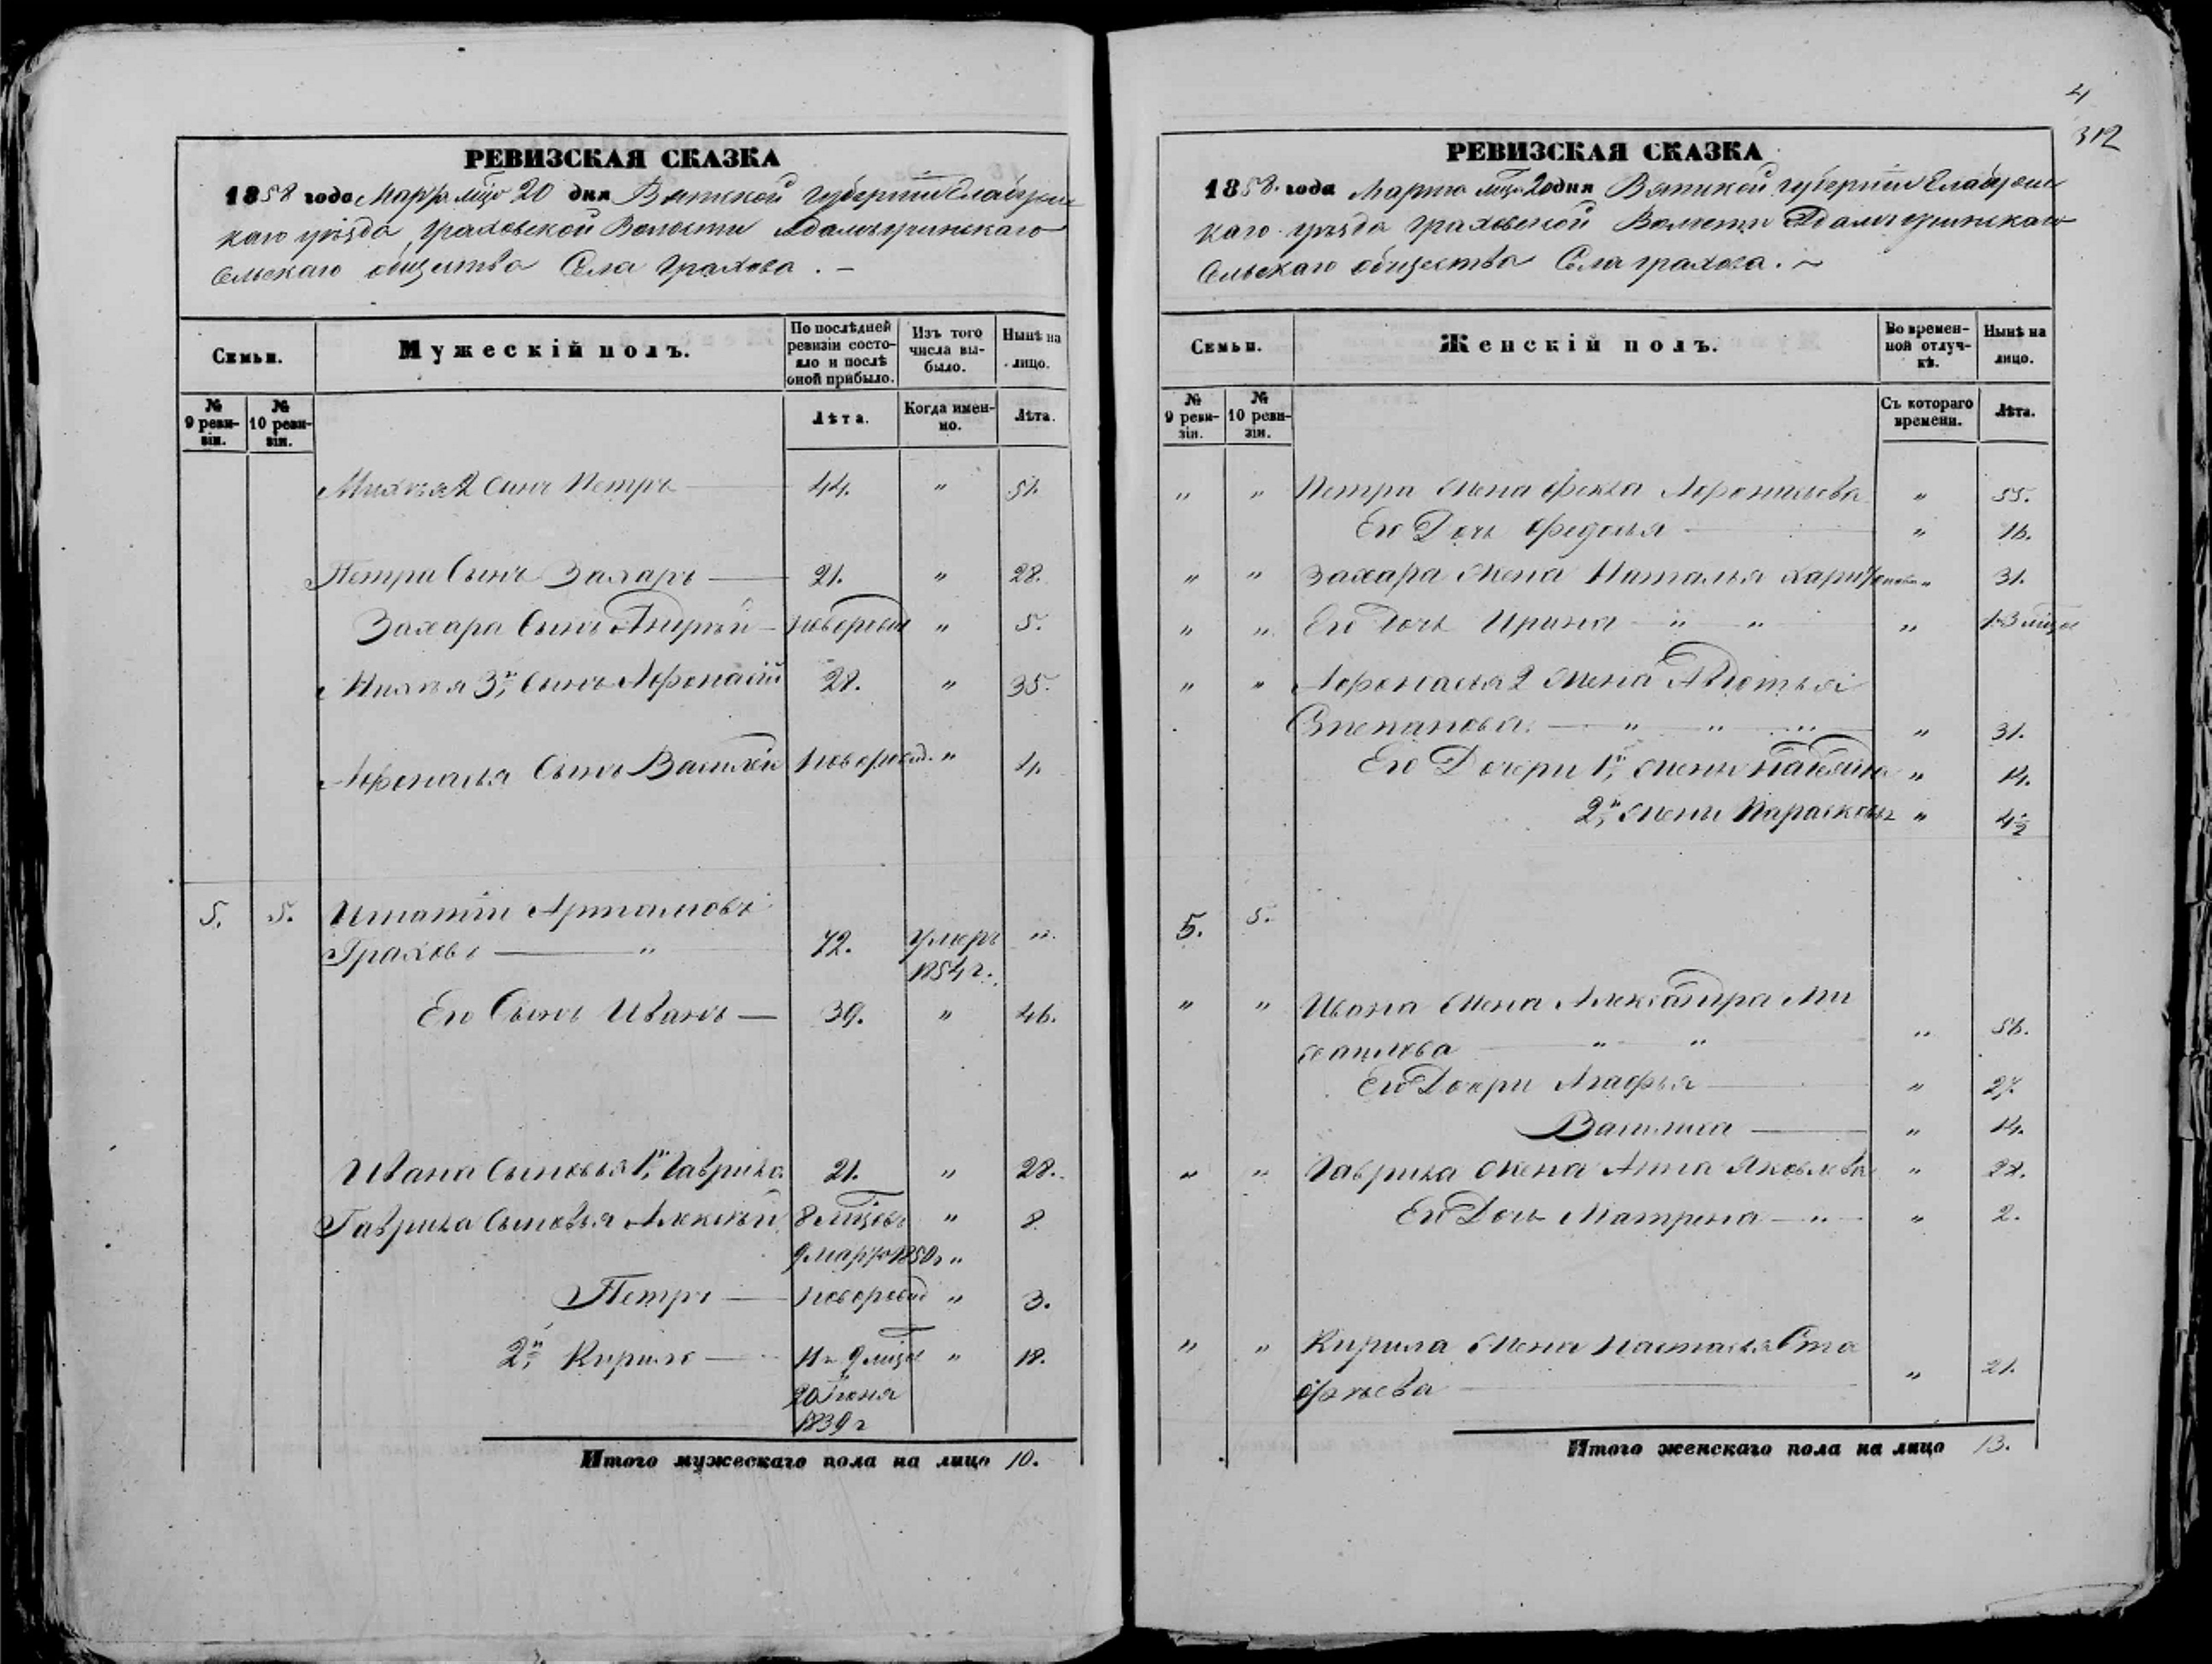 РЕВИЗСКАЯ СКАЗКА
1858 года Марта мца 20 дня Вятской губернии Елабужс
каго уѣзда, Граховской Волости Адамъучинскаго
Сельскаго общества Села Грахова. —
Семьи.
Мужескій полъ.
По послѣдней ревизіи состояло и послѣ оной прибыло.
Изъ того числа выбыло.
Нынѣ на лицо.
№ 9 ревизіи.
№ 10 ревизіи.
Лѣта.
Когда именно.
Лѣта.
2 Сынъ Петръ — 44. " 51.
Петра Сынъ Захаръ — 21. " 28.
Захара Сынъ Андрѣй — новорожд " 5.
3й Сынъ Афонасій 28. " 35.
Афонасья Сынъ Василей новорожд. " 4.
5. 5. Игнатій Артамоновъ
Граховъ — " 72. умеръ "
1854 г.
Его Сынъ Иванъ — 39. " 46.
Ивана Сыновья 1й Гаврила 21. " 28.
Гаврила Сыновья Алексѣй 8 мцовъ " 8
9 марта 1850 г "
Петръ — новорожд " 3.
2й Кирило — 11 и 9 мцов " 18.
20 Іюня
1839 г
Итого мужескаго пола на лицо 10.
4
312
РЕВИЗСКАЯ СКАЗКА
1858. года Марта мца 20 дня Вятской губерніи Елабужс
каго уѣзда Граховской Волости Адамъучинскаго
Сельскаго общества Села Грахова. ~
Семьи.
Женскій полъ.
Во временной отлучкѣ.
Нынѣ на лицо.
№ 9 ревизіи.
№ 10 ревизіи.
Съ котораго времени.
Лѣта.
" " Петра жена Фекла Афонасьева " 55.
Его Дочь Федосья — " 16.
" " Захара жена Наталья Харитонова " 31.
" " Его Дочь Ирина — " " " 1-3 мцов
" " Афонасья 2 жена Авдотья
Степанова. — " " " " 31.
Его Дочери 1й жены Татьяна " 14.
2й жены Парасковья " 4½
5. 5.
" " Ивана жена Александра Ми
хаилова — " " " 56.
Его Дочери Агафья — " 27.
Василиса — " 14.
" " Гаврила жена Анна Яковлева " 28.
Его Дочь Матрена — " — " 2.
" " Кирила жена Настасья Ста
фѣева — " 21.
Итого женскаго пола на лицо 13.